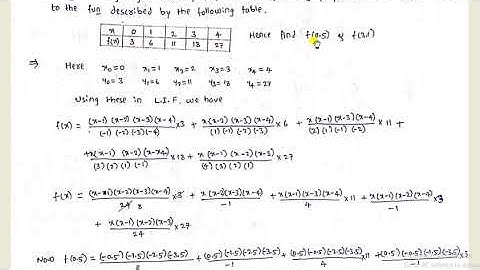 to the fun described by the following table.
x 0 1 2 3 4
f(x) 3 6 11 18 27
Hence find f(0.5) & f(3.1)
⇒ Here x₀=0 x₁=1 x₂=2 x₃=3 x₄=4
y₀=3 y₁=6 y₂=11 y₃=18 y₄=27
Using these in L.I.F. we have
f(x) = (x-1)(x-2)(x-3)(x-4)/(-1)(-2)(-3)(-4) ×3 + x(x-2)(x-3)(x-4)/(1)(-1)(-2)(-3) ×6 + x(x-1)(x-3)(x-4)/(2)(1)(-1)(-2) ×11 +
+x(x-1)(x-2)(x-4)/(3)(2)(1)(-1) ×18 + x(x-1)(x-2)(x-3)/(4)(3)(2)(1) ×27
f(x) = (x-1)(x-2)(x-3)(x-4)/24 8 ×3 + x(x-2)(x-3)(x-4)/-1 + x(x-1)(x-3)(x-4)/4 ×11 + x(x-1)(x-2)(x-4)/-1 ×3
+ x(x-1)(x-2)(x-3)/24 ×27
Now f(0.5) = (-0.5)(-1.5)(-2.5)(-3.5)/8 + (0.5)(-1.5)(-2.5)(-3.5)/-1 + (0.5)(-0.5)(-2.5)(-3.5)/4 ×11 + (0.5)(-0.5)(-1.5)(-3.5)/-1 ×3